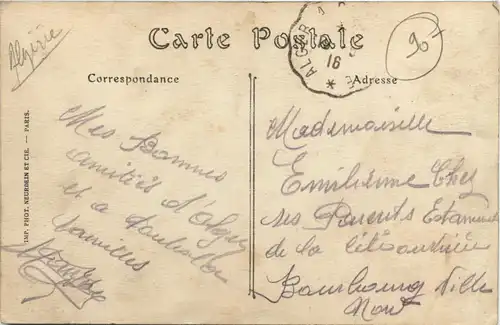 Algérie
Carte Postale
ALGER
16
90
Correspondance
Adresse
IMP. PHOT. NEURDEIN ET CIE. — PARIS.
Mes Bonnes
amitiés d'Alger
et a toute la
familles
Mademoiselle
Emilienne Chez
ses Parents Estaminet
de la
Bourbourg Ville
Nord